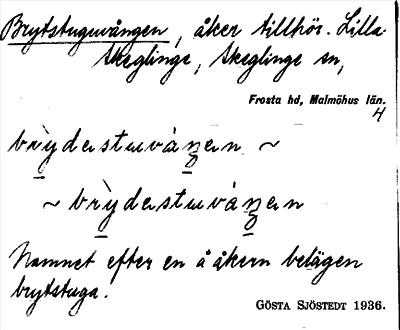 Brytstuguvången, åker tillhör. Lilla
Skeglinge, Skeglinge sn,
Frosta hd, Malmöhus län.
4
Namnet efter en å åkern belägen
brytstuga.
GÖSTA SJÖSTEDT 1936.